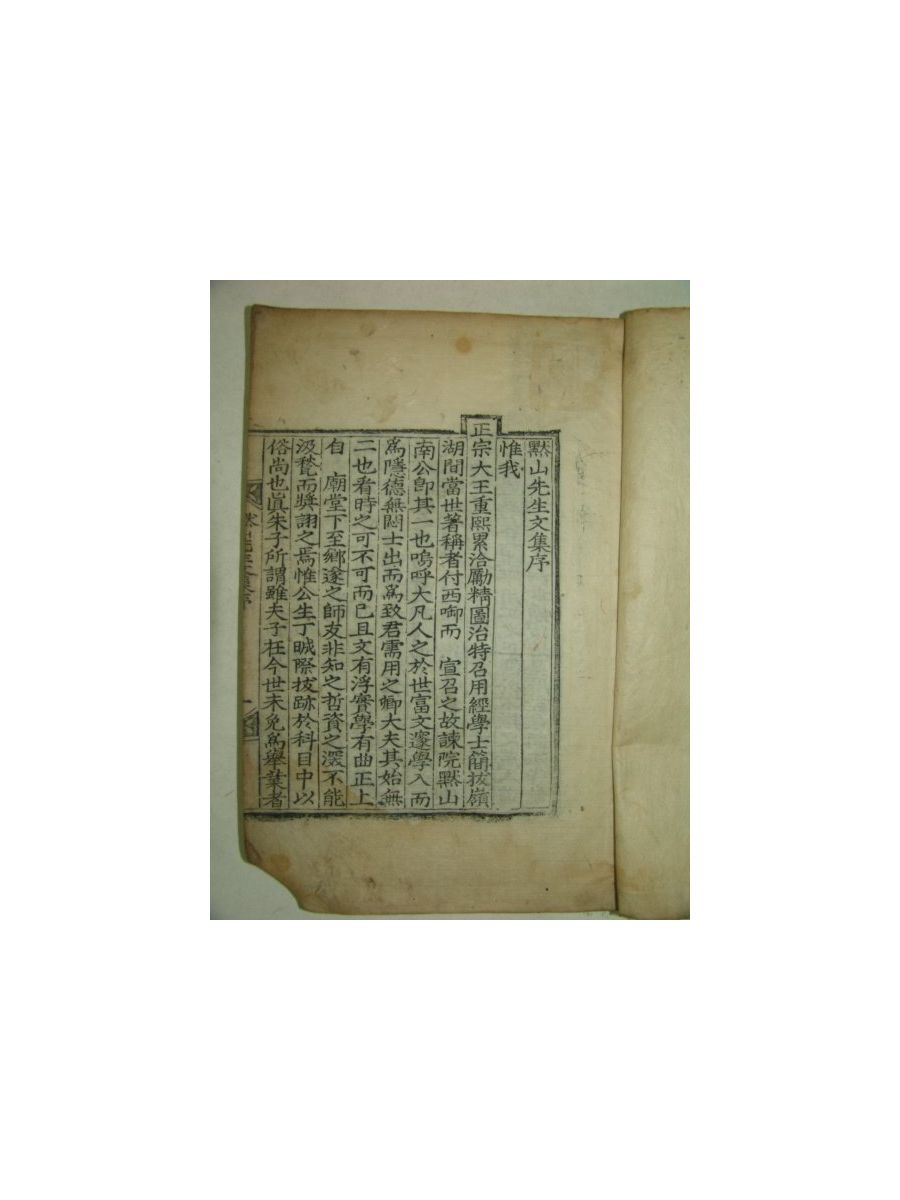 默山先生文集序
惟我
正宗大王重熙累洽勵精圖治特召用經學士簡拔嶺
湖間當世著稱者付西啣而 宣召之故諫院默山
南公卽其一也嗚呼大凡人之於世富文邃學入而
爲隱德無悶士出而爲致君需用之卿大夫其始無
二也看時之可不可而已且文有浮實學有曲正上
自 廟堂下至鄕遂之師友非知之哲資之深不能
汲甃而獎詡之焉惟公生丁晠際拔跡於科目中以
俗尚也眞朱子所謂雖夫子在今世未免爲擧業者